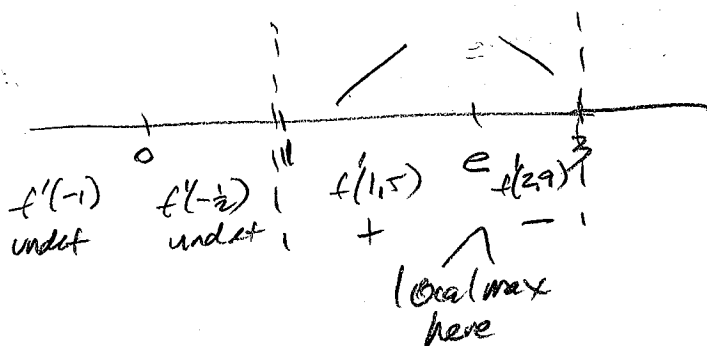 0 1 e 3
f'(-1) f'(-½) f'(1,5) f'(2,9)
undef undef + −
local max
here